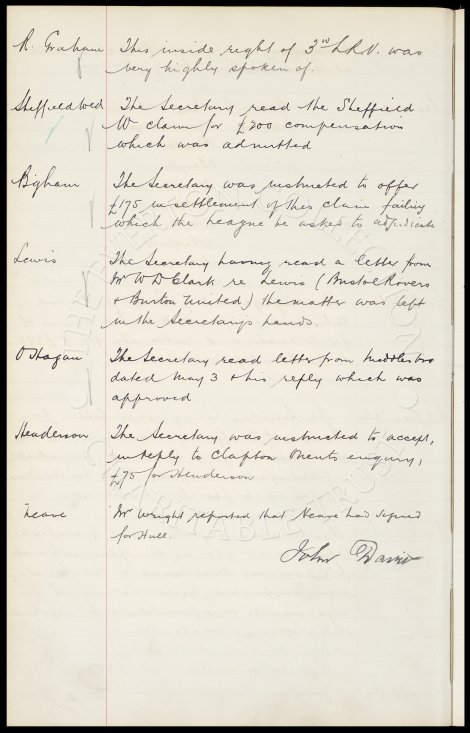 R. Graham This inside right of 3rd L.R.V. was
very highly spoken of.
Sheffield Wed The Secretary read the Sheffield
W claim for £200 compensation
which was admitted
Bigham The Secretary was instructed to offer
£175 in settlement of this claim failing
which the League be asked to adjudicate
Lewis The Secretary having read a letter from
Mr W D Clark re Lewis (Bristol Rovers
+ Burton United) the matter was left
in the Secretary's hands.
O'Hagan The Secretary read letter from Middlesbro
dated May 3 + his reply which was
approved
Henderson The Secretary was instructed to accept,
in reply to Clapton Orients enquiry,
£75 for Henderson
Neave Mr Wright reported that Neave had signed
for Hull.
John